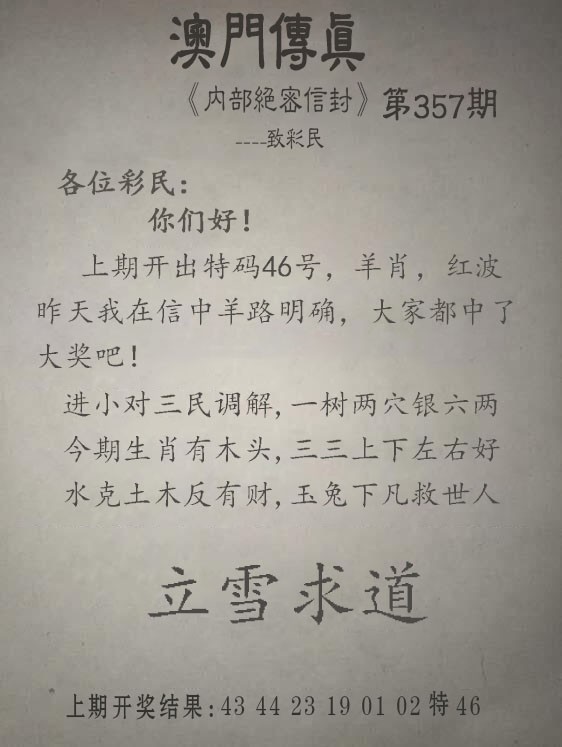 澳門傳眞
《内部絕密信封》第357期
----致彩民
各位彩民:
你们好!
上期开出特码46号，羊肖，红波
昨天我在信中羊路明确，大家都中了
大奖吧!
进小对三民调解,一树两穴银六两
今期生肖有木头,三三上下左右好
水克土木反有财,玉兔下凡救世人
立雪求道
上期开奖结果:43 44 23 19 01 02 特 46